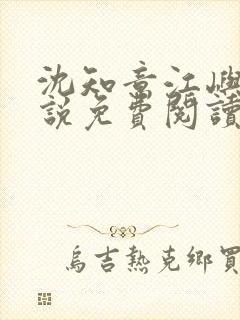 沈知意江嶼
說免費閱讀
烏吉熱克鄉買